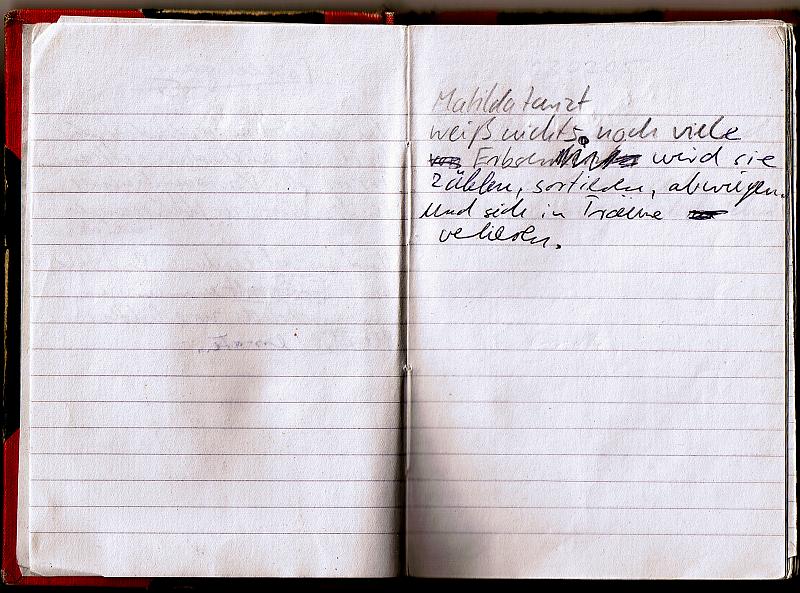 Matilda tanzt,
weiß nichts, noch viele
Erbsen wird sie
zählen, sortieren, abwiegen.
Und sich in Träume
verlieren.